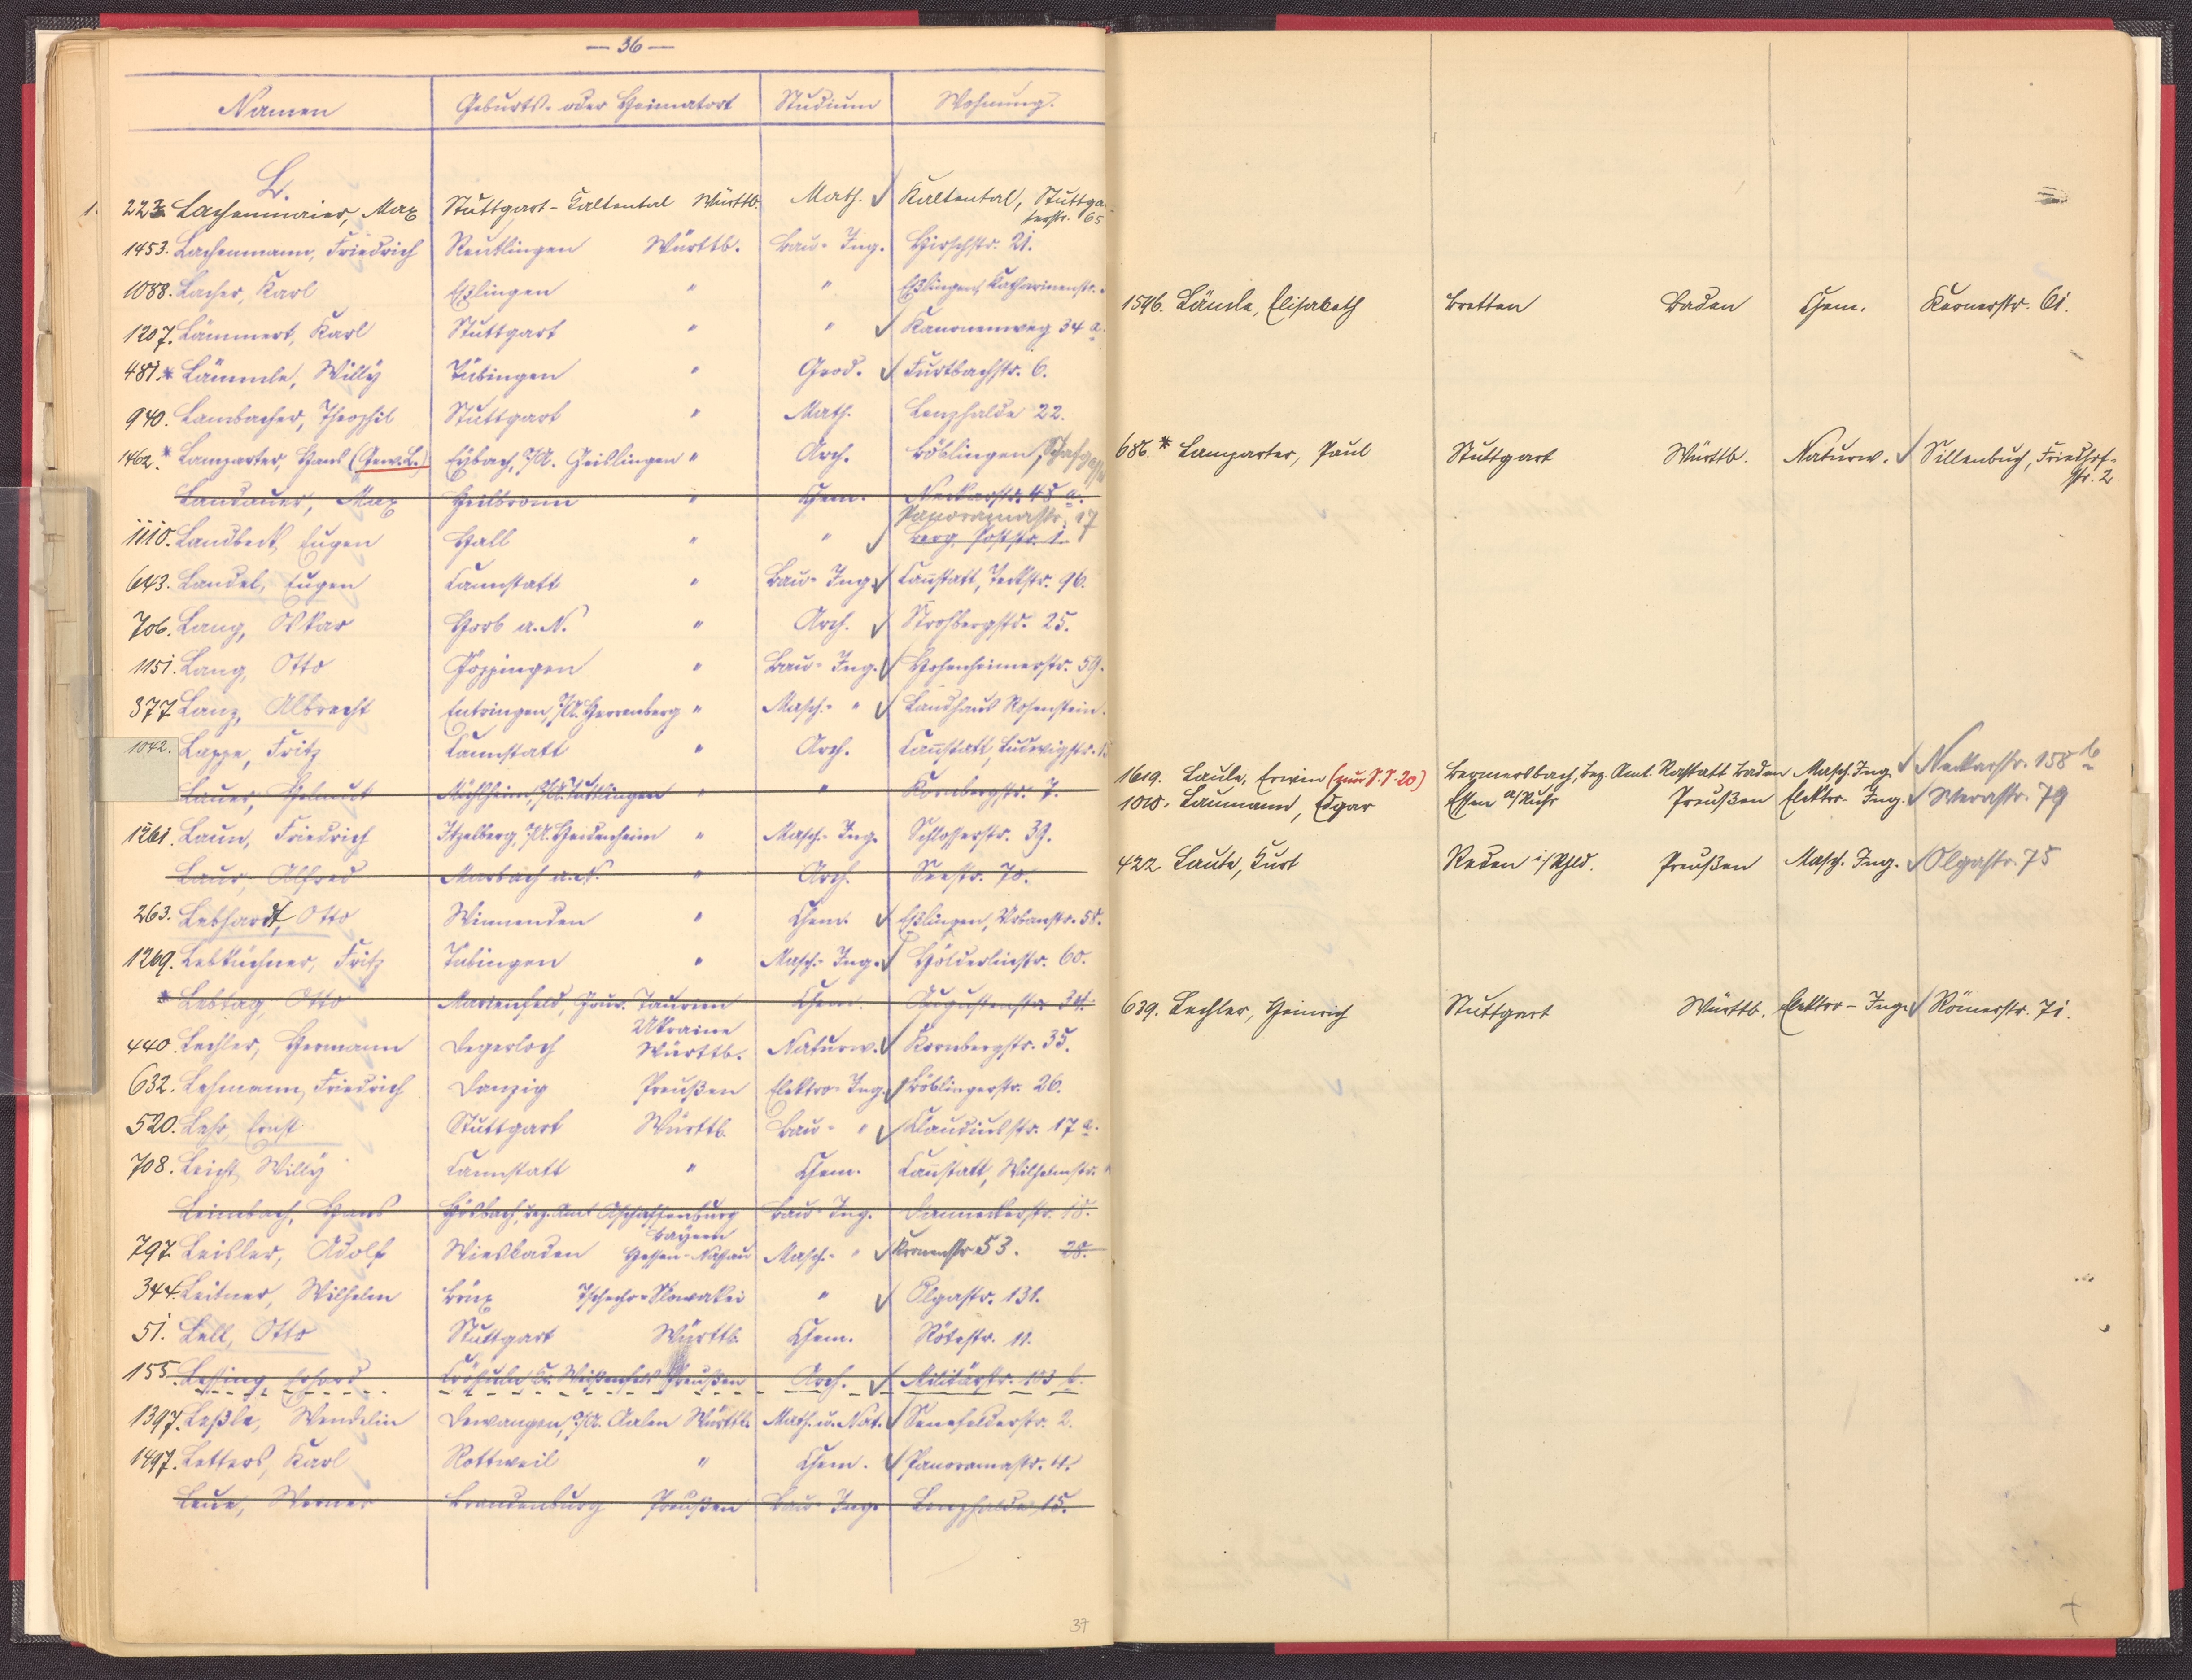 — 36 —
Namen Geburts- oder Heimatort Studium Wohnung.
L.
1. 223 Lachenmaier, Max Stuttgart-Kaltental Württb. Math. ✓ Kaltental, Stuttga-
terstr. 65
1453. Lachenmann, Friedrich Reutlingen Württb. Bau-Ing. Hirschstr. 21.
1088. Lacher, Karl Eßlingen " " Eßlingen, Katharinenstr.
1207. Lämmert, Karl Stuttgart " " ✓ Kanonenweg 34 a.
481. * Lämmle, Willy Tübingen " Geod. ✓ Furtbachstr. 6.
940. Lambacher, Theophil Stuttgart " Math. Lenzhalde 22.
1462. * Lamparter, Hans (Gew.L.) Eybach, O/A. Geislingen " Arch. Böblingen
Landauer, Max Heilbronn " Chem. Neckarstr. 48 a.
Panoramastr. 17
1110. Landbeck, Eugen Hall " " ✓ Berg, Poststr. 1.
643. Landel, Eugen Cannstatt " Bau-Ing. ✓ Canstatt, Teckstr. 96.
706. Lang, Oskar Horb a. N. " Arch. ✓ Strohbergstr. 25.
1151. Lang, Otto Göppingen " Bau-Ing. ✓ Hohenheimerstr. 59.
377. Lanz, Albrecht Entringen, O/A. Herrenberg " Masch.- " ✓ Landhaus Rosenstein.
1042. Lappe, Fritz Cannstatt " Arch. Canstatt, Ludwigstr.
Lauer, Helmut Mühlheim, O/A. Tuttlingen " " Kornbergstr. 7.
1261. Laun, Friedrich Itzelberg, O/A. Heidenheim " Masch.-Ing. Schlosserstr. 39.
Laur, Alfred Marbach a. N. " Arch. Seestr. 70.
263. Lebhardt, Otto Winnenden " Chem. ✓ Eßlingen, Urbanstr. 58.
1269. Lebküchner, Fritz Tübingen " Masch.-Ing. ✓ Hölderlinstr. 60.
* Lebtag, Otto Marienfeld, Gouv. Taurien Chem. Augustenstr. 34.
Ukraine
440. Lechler, Hermann Degerloch Württb. Naturw. ✓ Kornbergstr. 35.
632. Lehmann, Friedrich Danzig Preußen Elektro-Ing. ✓ Böblingerstr. 26.
520. Lehr, Ernst Stuttgart Württb. Bau- " ✓ Claudiusstr. 17 a.
708. Leicht, Willy Cannstatt " Chem. Canstatt, Wilhelmstr.
Leimbach, Hans Hösbach, Bez. Amt Aschaffenburg Bau-Ing. Danneckerstr. 18.
Bayern
797. Leisler, Adolf Wiesbaden Hessen-Nassau Masch.- " ✓ Kronenstr 53. 28.
344. Leitner, Wilhelm Brüx Tschecho-Slowakei " ✓ Olgastr. 131.
51. Lell, Otto Stuttgart Württb. Chem. Rötestr. 11.
155. Lessing, Erhard Crössuln, Kr. Weißenfels Preußen Arch. ✓ Militärstr. 103 b.
1397. Leßle, Wendelin Dewangen, O/A. Aalen Württb. Math. u. Nat. ✓ Senefelderstr. 2.
1497. Letters, Karl Rottweil " Chem. ✓ Panoramastr. 4.
Leue, Werner Brandenburg Preußen Bau-Ing. Lenzhalde 15.
37
1596. Lämle, Elisabeth Bretten Baden Chem. Kernerstr. 61.
686. * Lamparter, Paul Stuttgart Württb. Naturw. ✓ Sillenbuch, Friedhof-
str. 2
1619. Laule, Erwin (nur S.S. 20) Bermersbach, Bez. Amt. Rastatt Baden Masch. Ing. ✓ Neckarstr. 158 b
1018. Laumann, Edgar Essen a/Ruhr Preußen Elektro-Ing. ✓ Werastr. 79
422 Laute, Kurt Reden i/Rhld. Preußen Masch. Ing. ✓ Olgastr. 75
639. Lechler, Heinrich Stuttgart Württb. Elektro-Ing. ✓ Römerstr. 71.